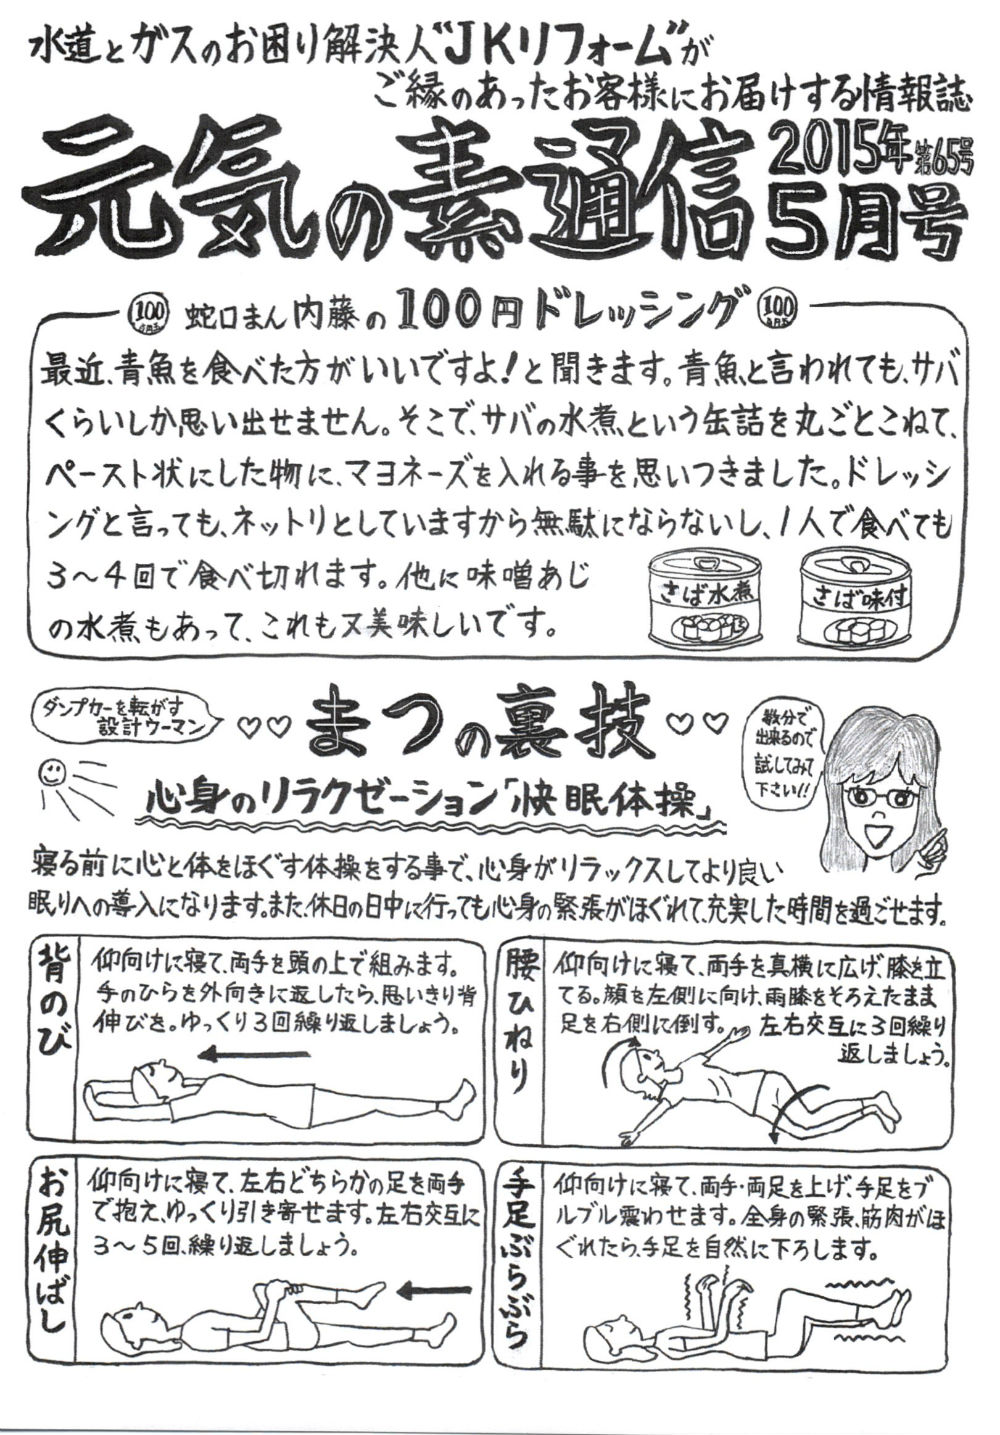 水道とガスのお困り解決人"JKリフォーム"が
ご縁のあったお客様にお届けする情報誌
元気の素通信
2015年 第65号
5月号
100 蛇口まん内藤の100円ドレッシング 100
最近、青魚を食べた方がいいですよ!と聞きます。青魚と言われても、サバ
くらいしか思い出せません。そこで、サバの水煮という缶詰を丸ごとこねて、
ペースト状にした物に、マヨネーズを入れる事を思いつきました。ドレッシ
ングと言っても、ネットリとしていますから無駄にならないし、1人で食べても
3〜4回で食べ切れます。他に味噌あじ
の水煮もあって、これも又美味しいです。
さば水煮
さば味付
ダンプカーを転がす
設計ウーマン
♡♡まつの裏技♡♡
数分で
出来るので
試してみて
下さい!!
心身のリラクゼーション「快眠体操」
寝る前に心と体をほぐす体操をする事で、心身がリラックスしてより良い
眠りへの導入になります。また、休日の日中に行っても心身の緊張がほぐれて、充実した時間を過ごせます。
背のび
仰向けに寝て、両手を頭の上で組みます。
手のひらを外向きに返したら、思いきり背
伸びを。ゆっくり3回繰り返しましょう。
腰ひねり
仰向けに寝て、両手を真横に広げ、膝を立
てる。顔を左側に向け、両膝をそろえたまま
足を右側に倒す。左右交互に3回繰り
返しましょう。
お尻伸ばし
仰向けに寝て、左右どちらかの足を両手
で抱え、ゆっくり引き寄せます。左右交互に
3〜5回、繰り返しましょう。
手足ぶらぶら
仰向けに寝て、両手・両足を上げ、手足をブ
ルブル震わせます。全身の緊張、筋肉がほ
ぐれたら、手足を自然に下ろします。